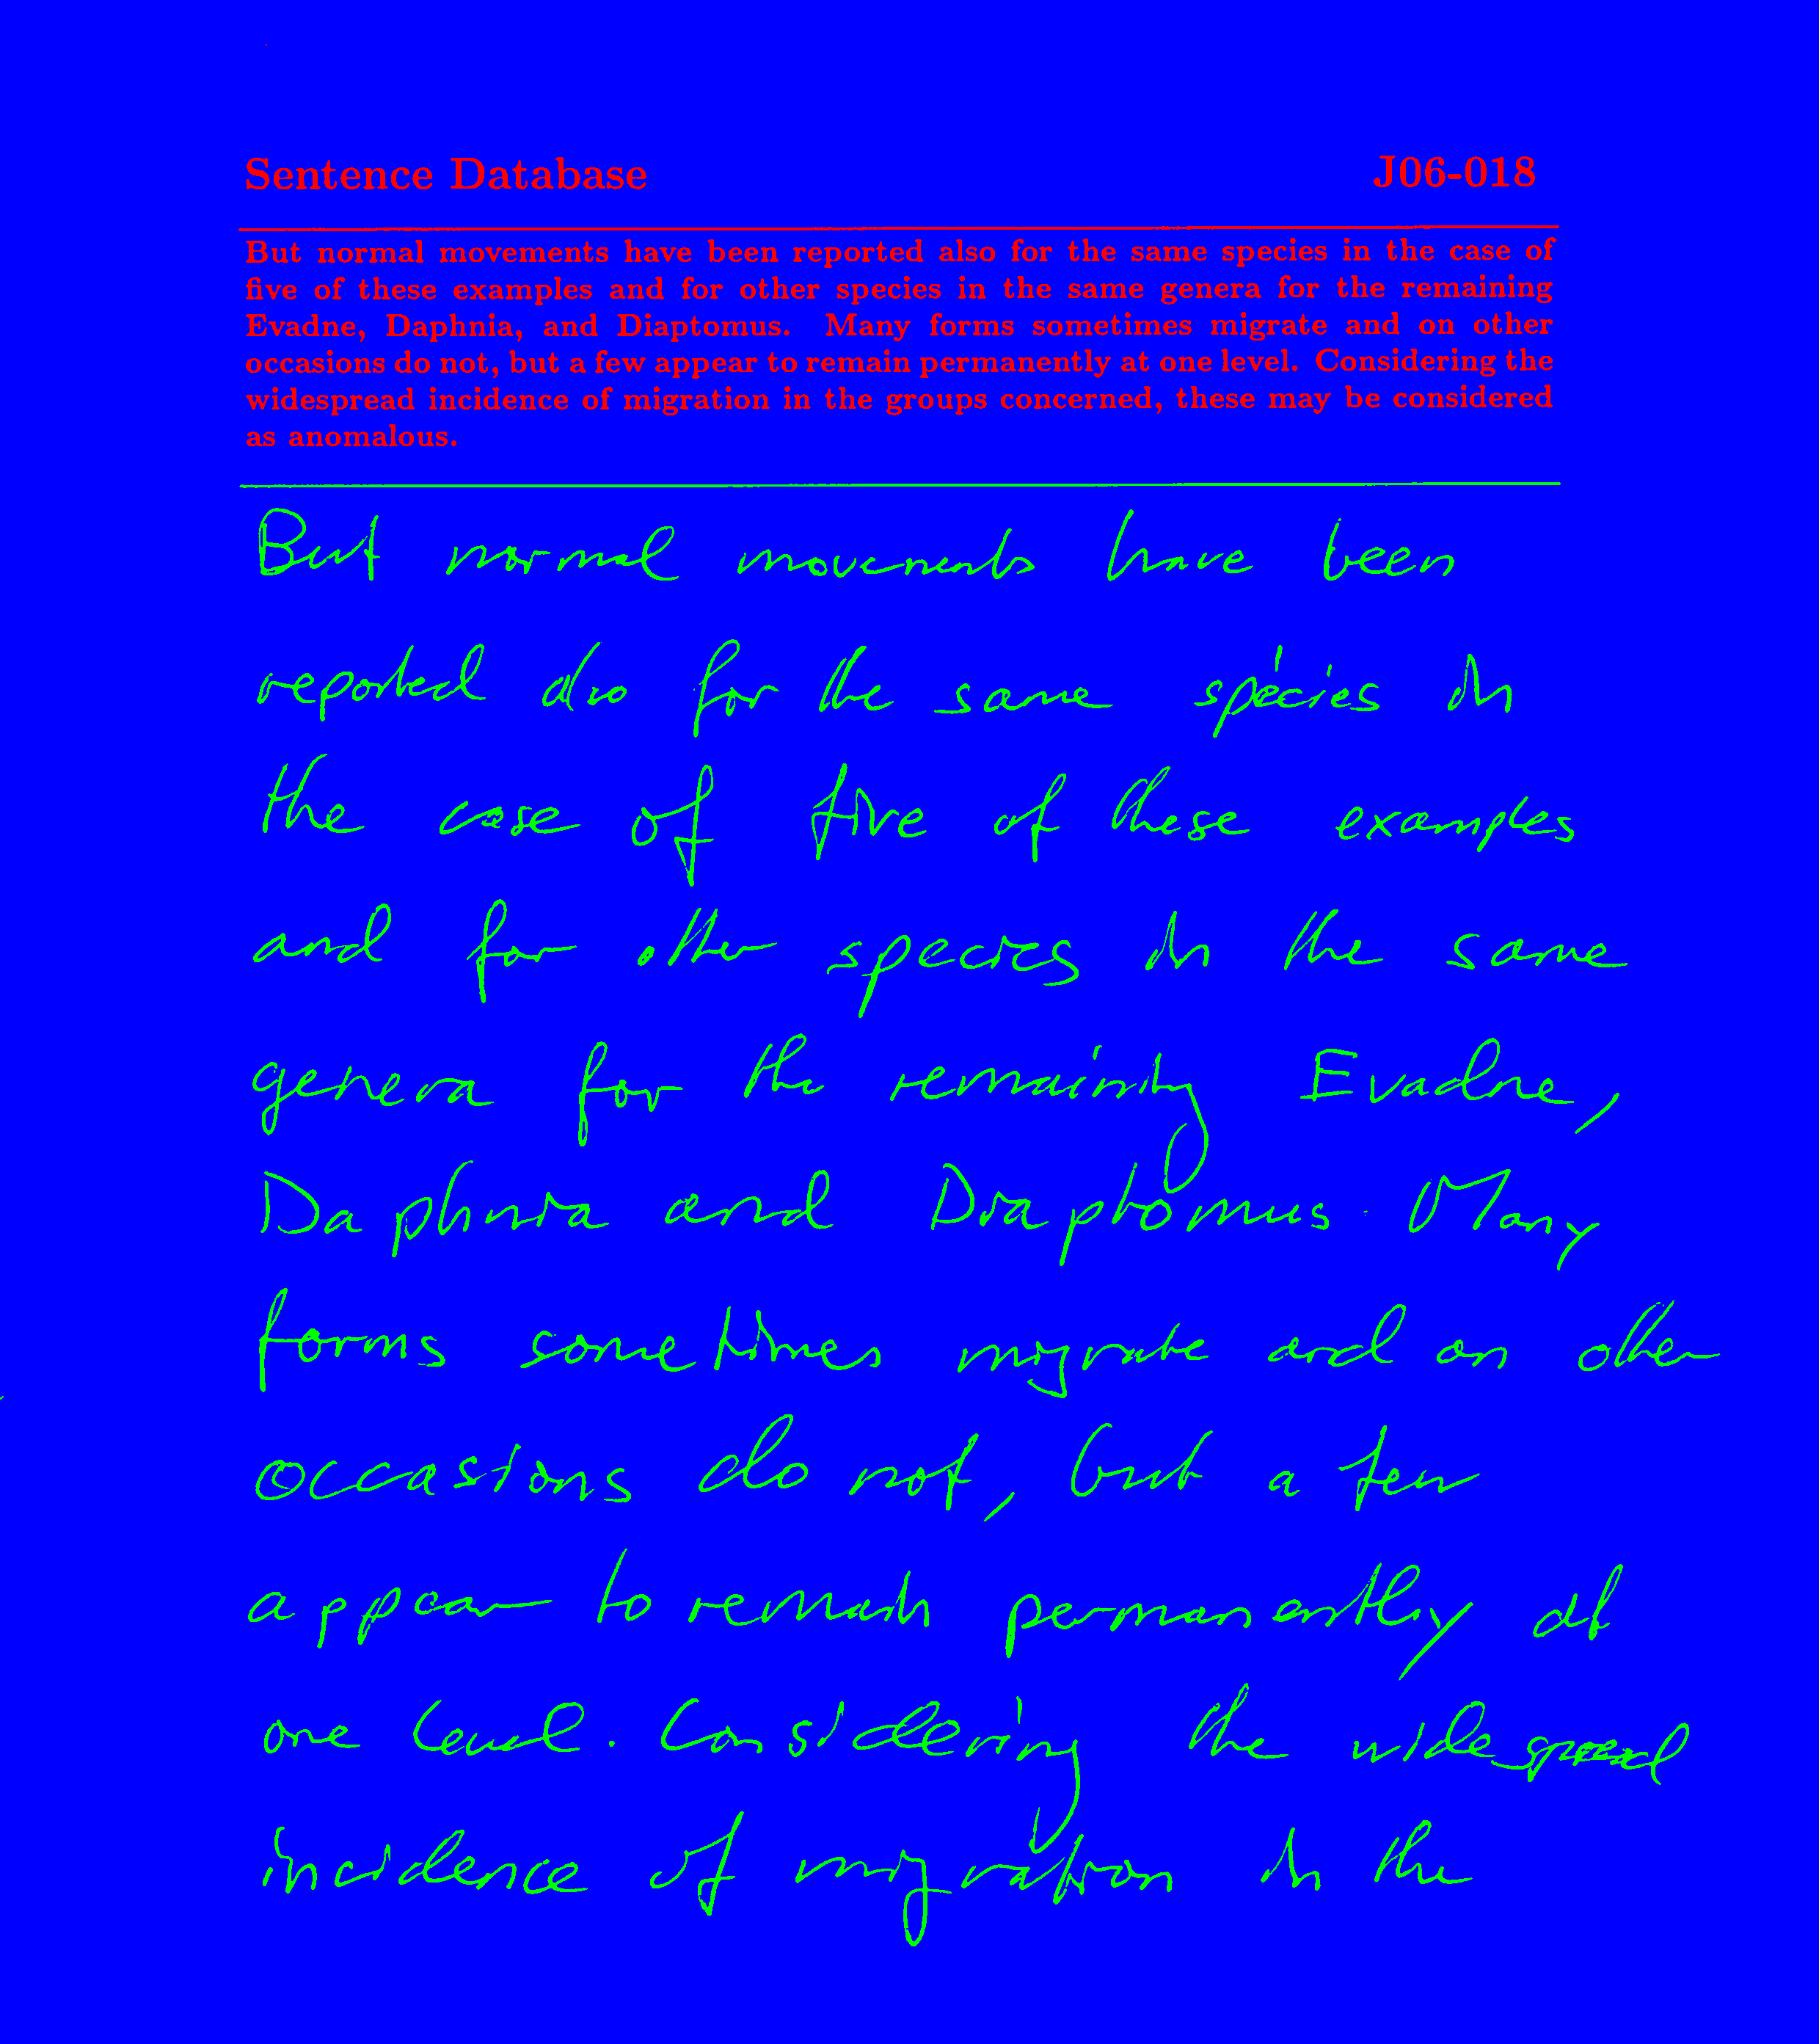 Sentence Database J06-018
But normal movements have been reported also for the same species in the case of
five of these examples and for other species in the same genera for the remaining
Evadne, Daphnia, and Diaptomus. Many forms sometimes migrate and on other
occasions do not, but a few appear to remain permanently at one level. Considering the
widespread incidence of migration in the groups concerned, these may be considered
as anomalous.
But normal movements have been
reported also for the same species in
the case of five of these examples
and for other species in the same
genera for the remaining Evadne,
Daphnia and Diaptomus. Many
forms sometimes migrate and on other
occasions do not, but a few
appear to remain permanently at
one level. Considering the widespread
incidence of migration in the